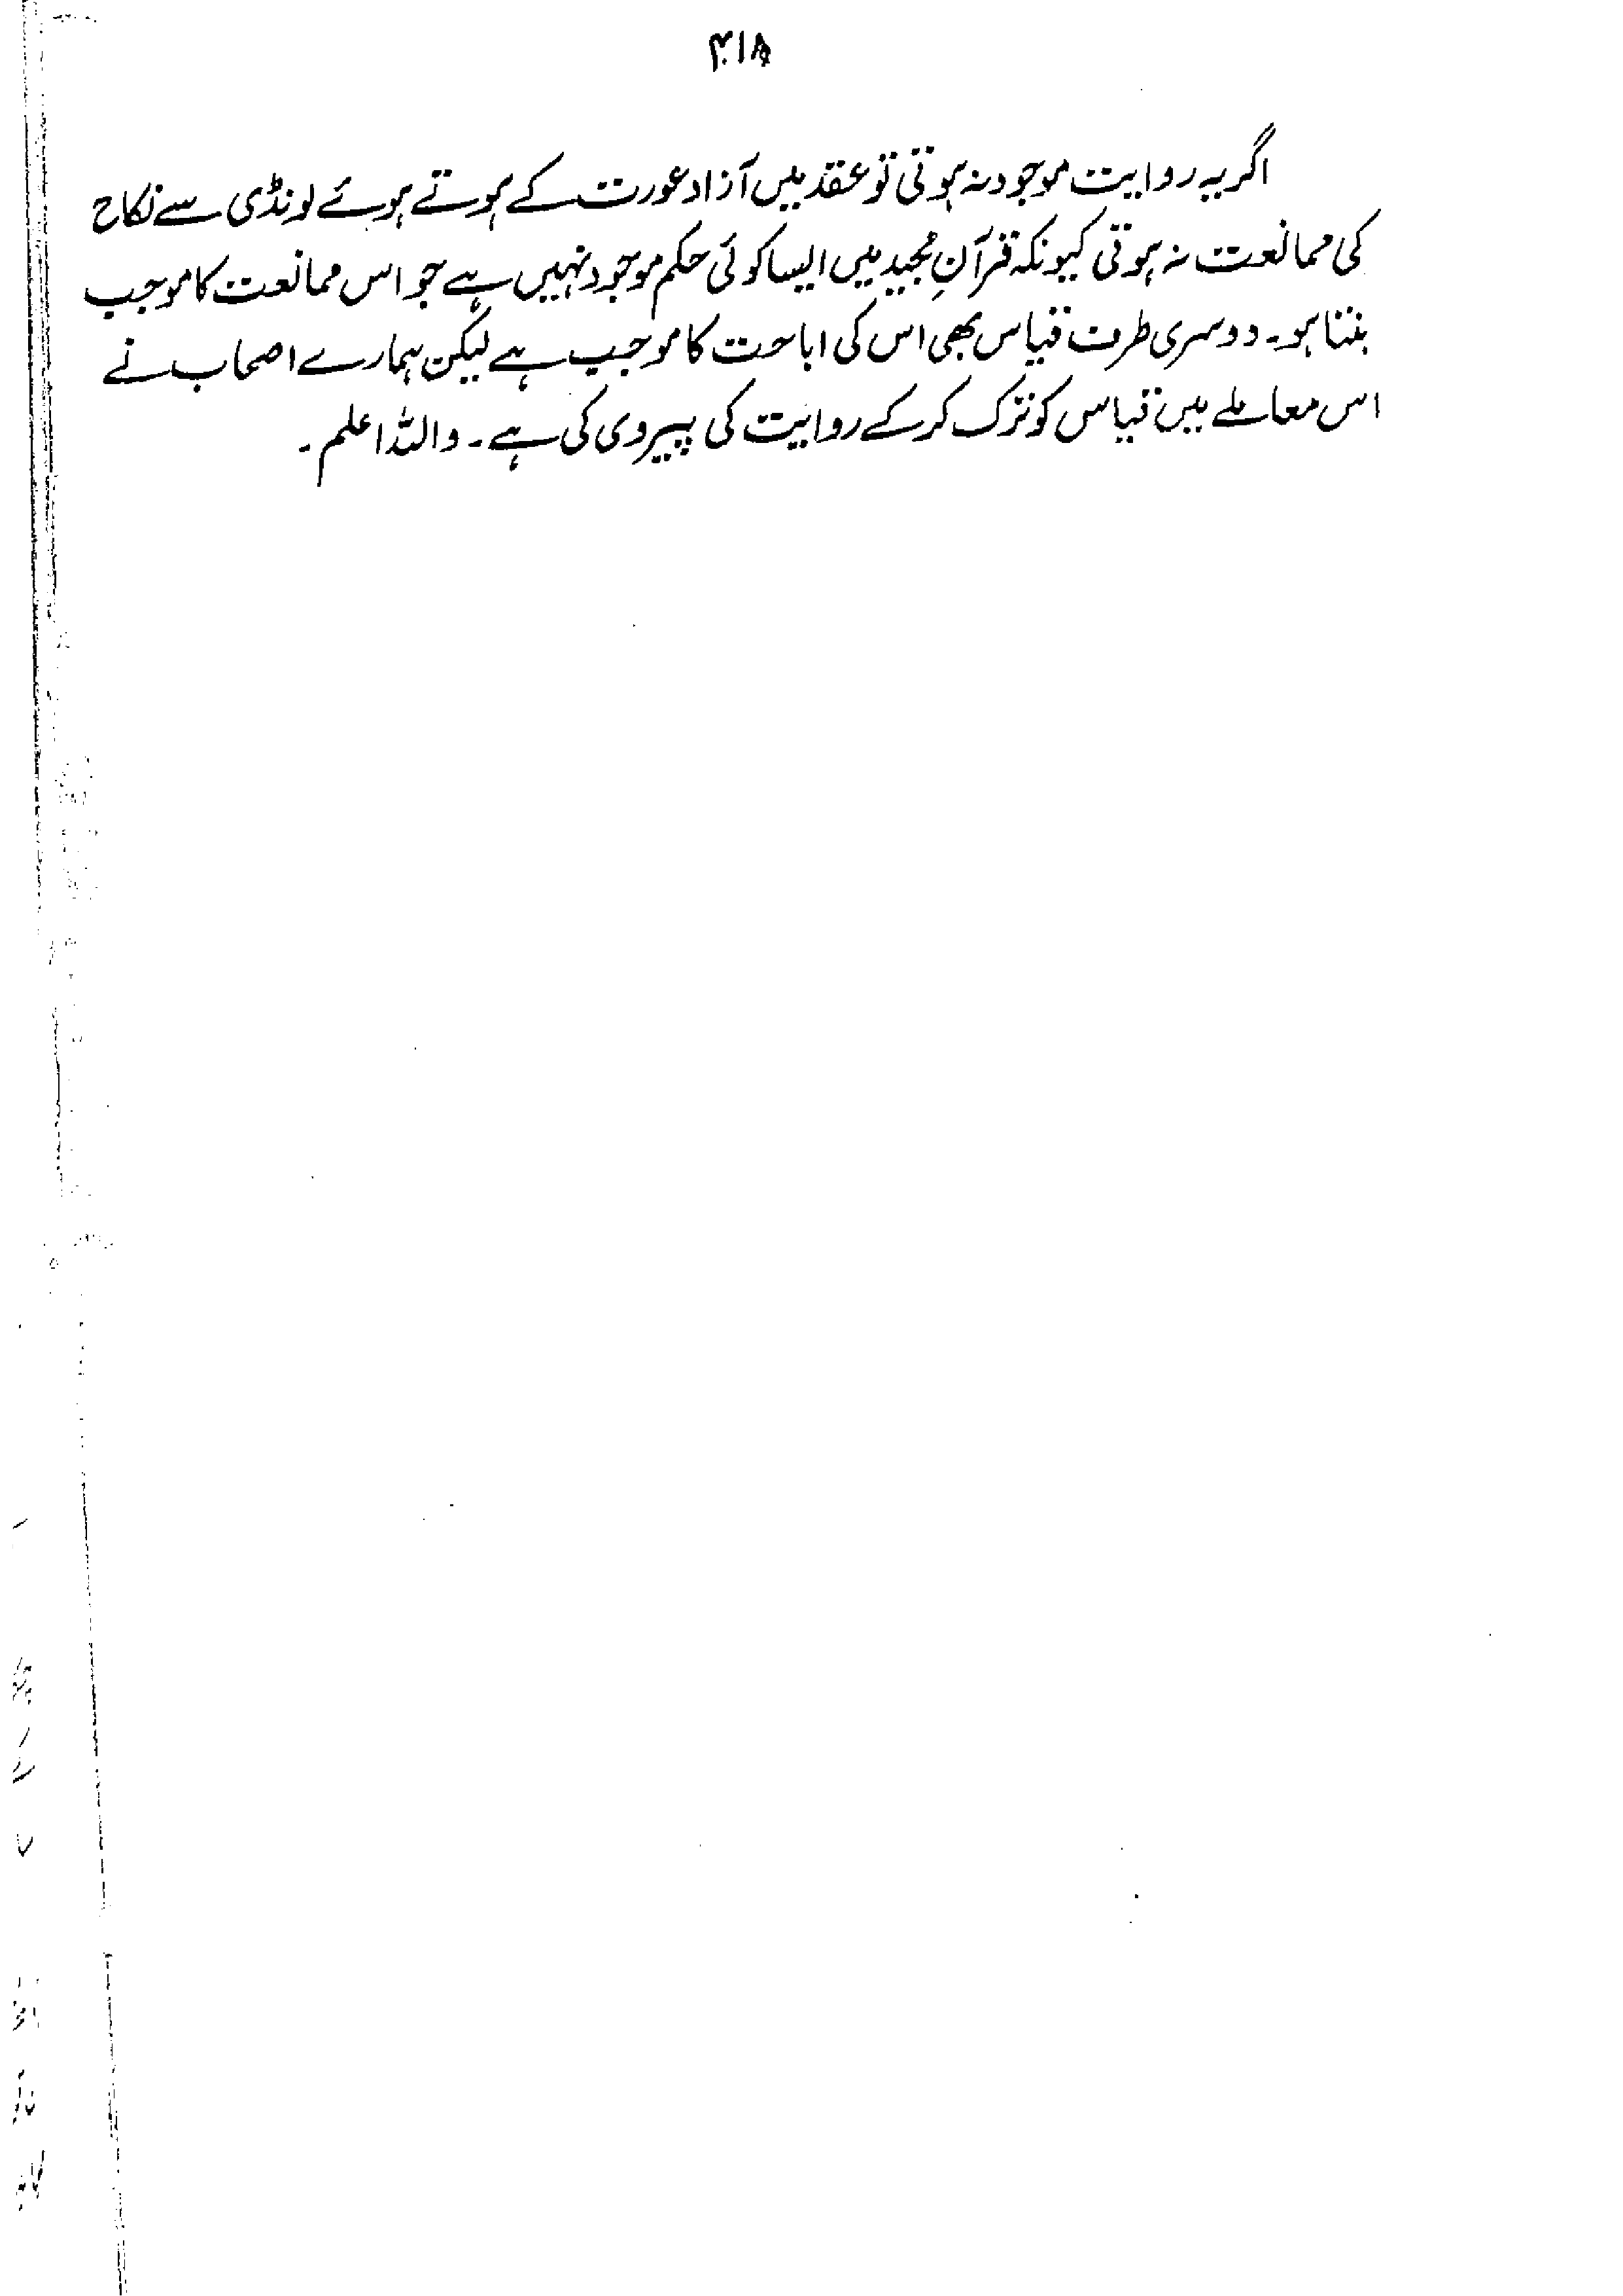 ۴۱۸
اگر یہ روایت موجود نہ ہوتی تو عقد میں آزاد عورت کے ہوتے ہوئے لونڈی سے نکاح
کی ممانعت نہ ہوتی کیونکہ قرآنِ مجید میں ایسا کوئی حکم موجود نہیں ہے جو اس ممانعت کا موجب
بنتا ہو۔ دوسری طرف قیاس بھی اس کی اباحت کا موجب ہے لیکن ہمارے اصحاب نے
اس معاملے میں قیاس کو ترک کر کے روایت کی پیروی کی ہے۔ واللہ اعلم۔